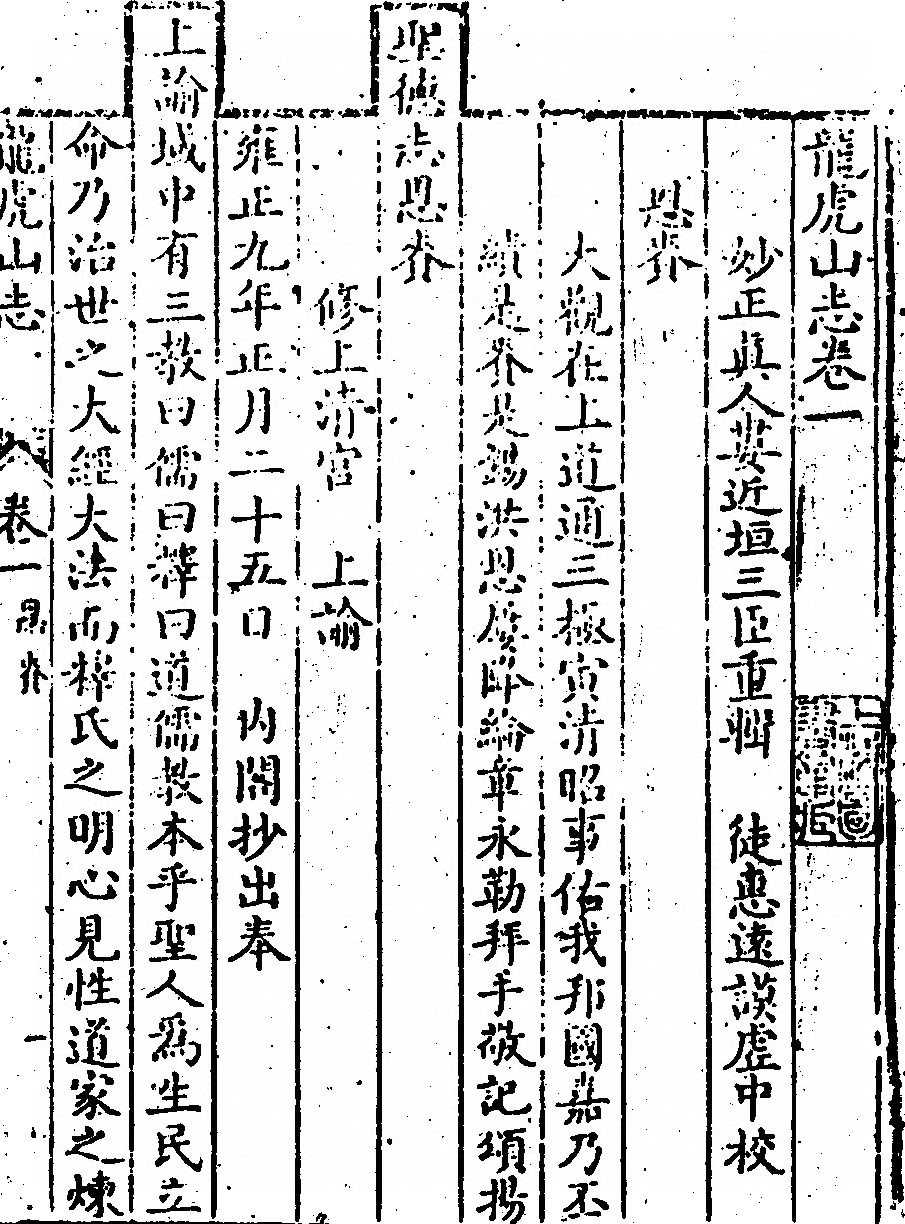 龍虎山志卷一
妙正真人婁近垣三臣重輯　徒惠遠謨虛中校
恩賚
大觀在上道通三極寅清昭事佑我邦國嘉乃丕
績是賚是錫洪恩廣眸綸章永勒拜手敬記頌揚
聖德志恩賚
修上清宮　上諭
雍正九年正月二十五日　內閣抄出奉
上諭域中有三教曰儒曰釋曰道儒教本乎聖人為生民立
命乃治世之大經大法而釋氏之明心見性道家之煉
龍虎山志　卷一　恩賚　一